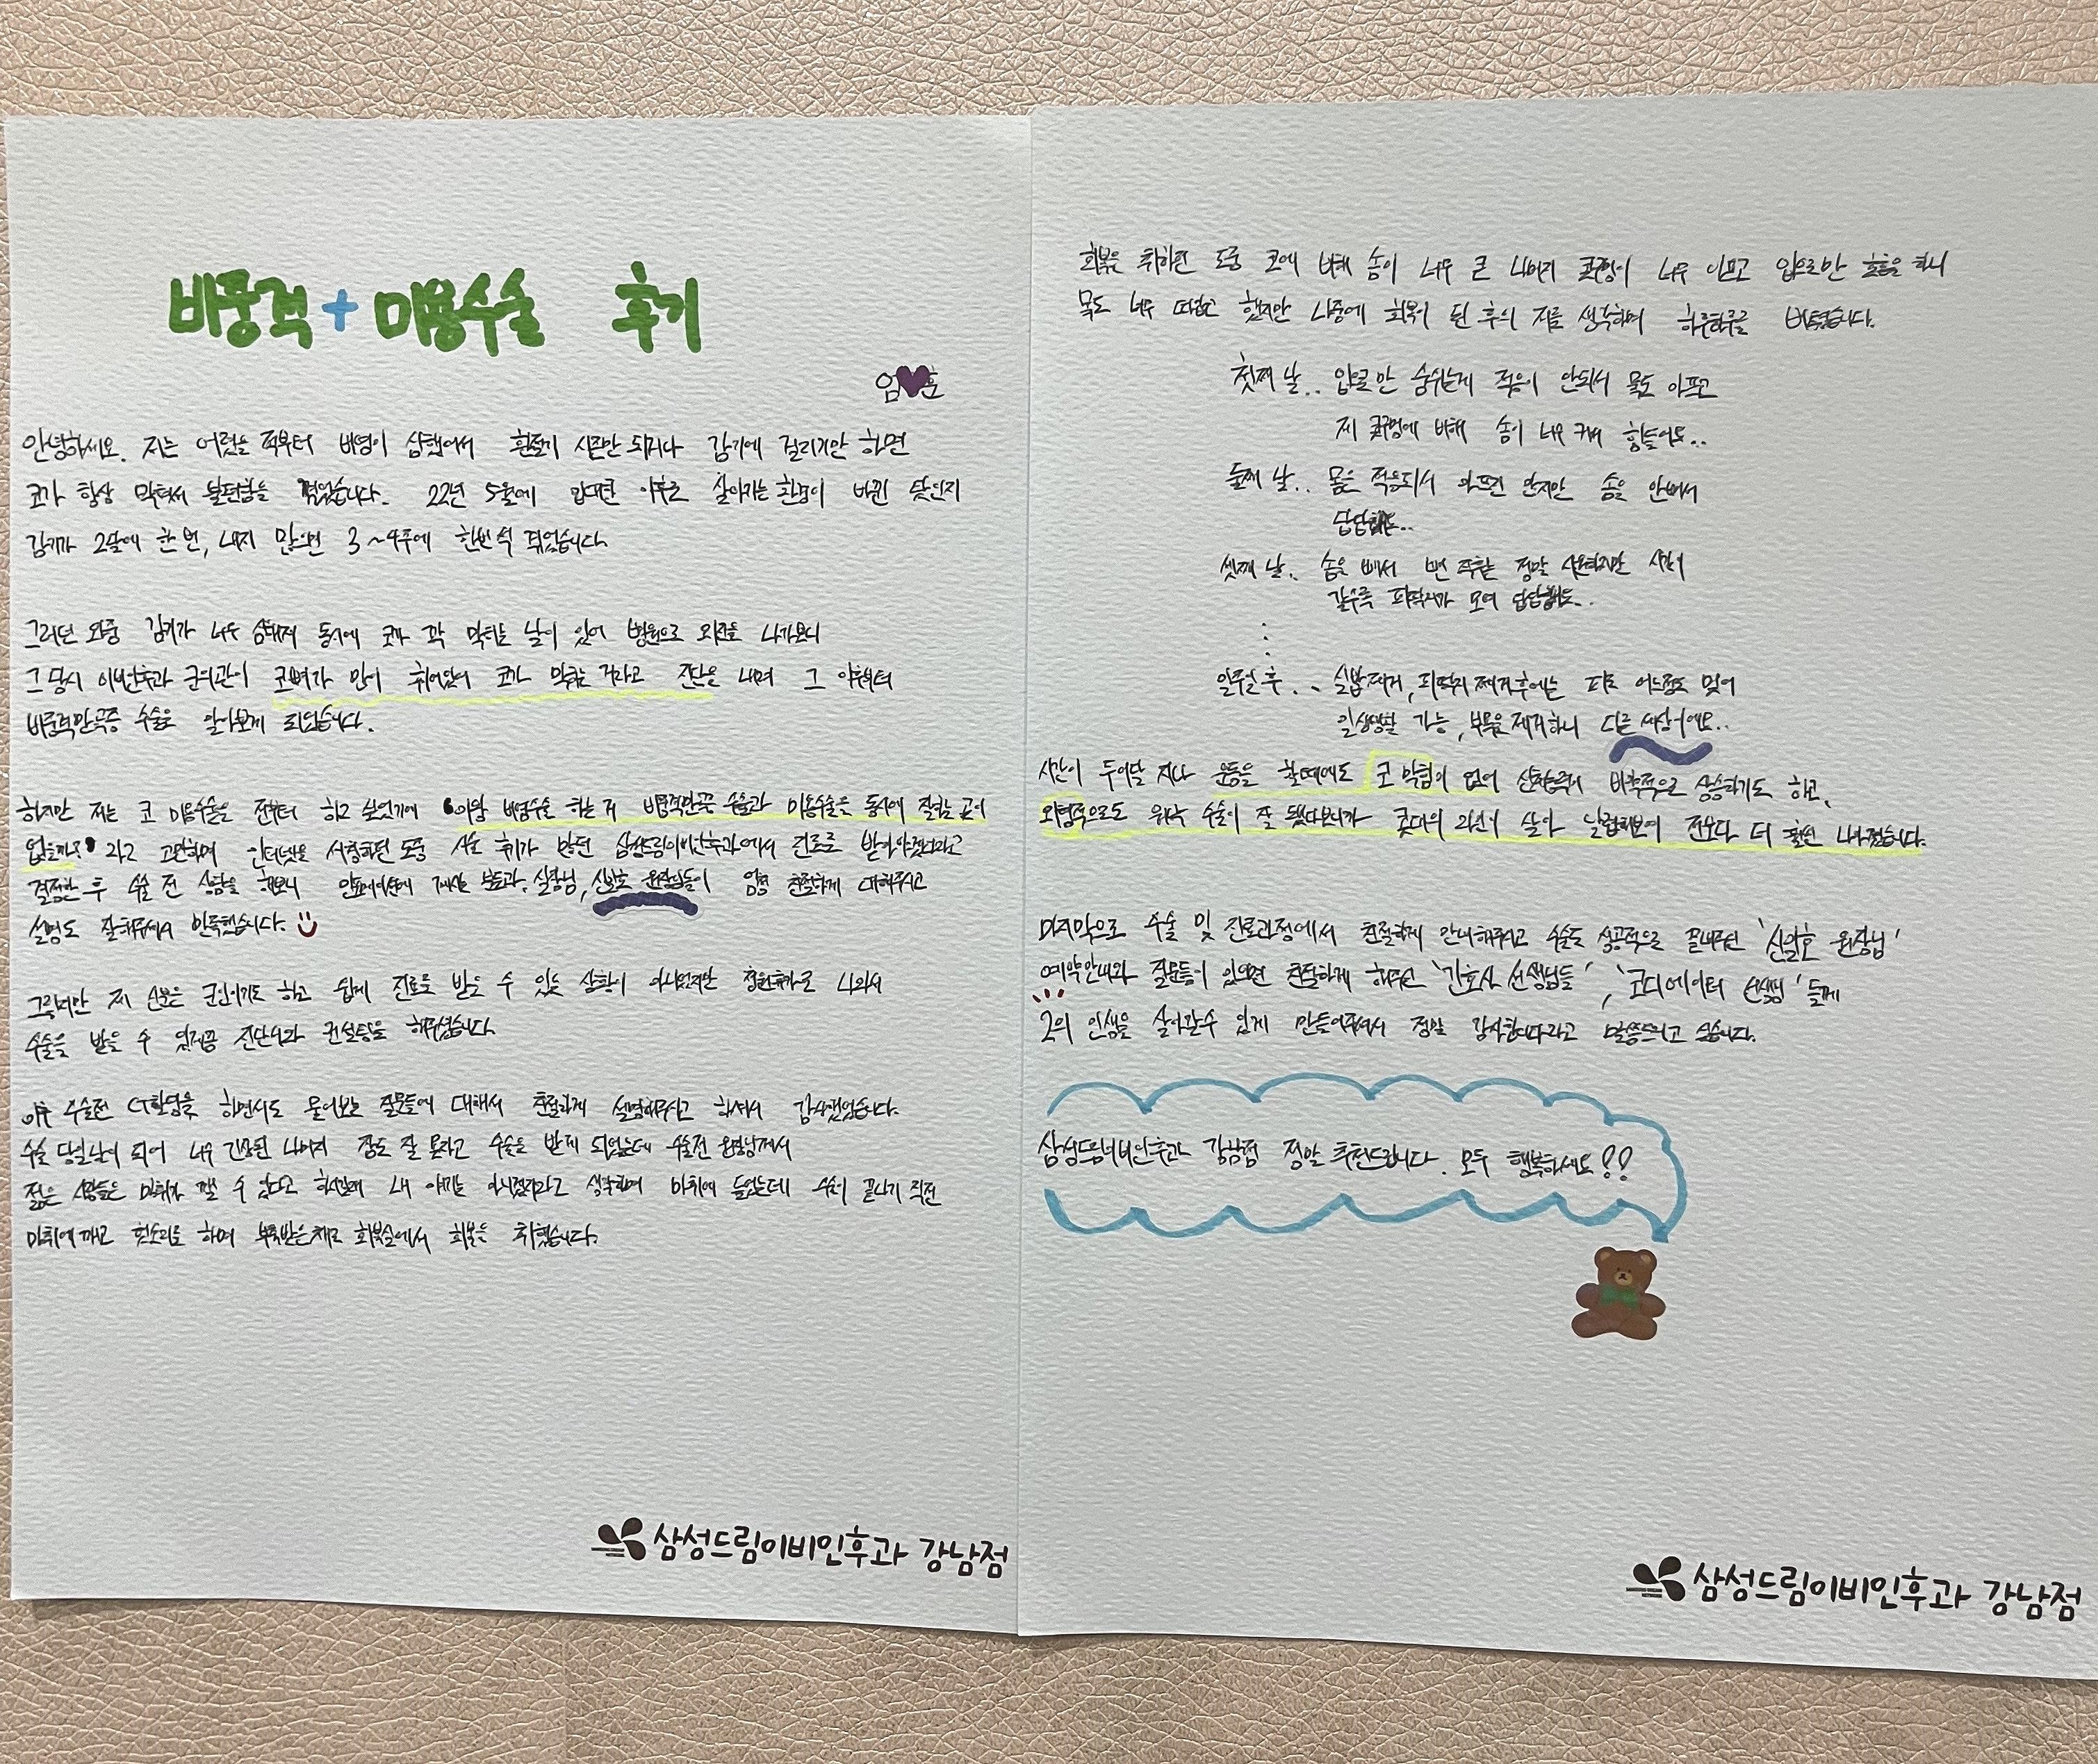 비중격+미용수술 후기
임 훈
안녕하세요. 저는 어렸을 적부터 비염이 심했어서 환절기 시즌만 되거나 감기에 걸리기만 하면
코가 항상 막혀서 불편함을 겪었습니다. 22년 5월에 입대한 이후로 살아가는 환경이 바뀐 탓인지
감기가 2달에 한 번, 내지 많으면 3~4주에 한번씩 겪었습니다.
그러던 와중 감기가 너무 심해져 동시에 코가 꽉 막히는 날이 있어 병원으로 외진을 나가보니
그 당시 이비인후과 군의관이 코뼈가 많이 휘어있어 코가 막히는 거라고 진단을 내려 그 이후부터
비중격만곡증 수술을 알아보게 되었습니다.
하지만 저는 코 미용수술을 전부터 하고 싶었기에 '이왕 비염수술 하는 거 비중격만곡 수술과 미용수술을 동시에 잘하는 곳이
없을까?' 라고 고민하며 인터넷을 서칭하던 도중 수술 후기가 많던 삼성드림이비인후과에서 진료를 받아야겠다라고
결정한 후 수술 전 상담을 해보니 안내데스크에 계시는 분들과, 실장님, 신일호 원장님들이 엄청 친절하게 대해주시고
설명도 잘해주셔서 만족했습니다.
그렇지만 제 신분은 군인이기도 하고 쉽게 진료를 받을 수 있는 상황이 아니었지만 정기휴가로 나와서
수술을 받을 수 있게끔 진단서와 컨설팅을 해주셨습니다.
이후 수술전 CT촬영을 하면서도 물어보는 질문들에 대해서 친절하게 설명해주시고 하셔서 감사했었습니다.
수술 당일날이 되어 너무 긴장된 나머지 잠도 잘 못자고 수술을 받게 되었는데 수술전 원장님께서
젊은 사람들은 마취가 깰 수 있다고 하셨길래 내 얘기는 아니겠거라고 생각하며 마취에 들었는데 수술이 끝나기 직전
마취에 깨고 헛소리를 하며 부축받은채로 회복실에서 회복을 취했습니다.
삼성드림이비인후과 강남점
회복을 취하던 도중 코에 비해 솜이 너무 큰 나머지 콧구멍이 너무 아프고 입으로만 호흡을 하니
목도 너무 따갑고 했지만 나중에 회복이 된 후의 저를 생각하며 하루하루를 버텼습니다.
첫째 날.. 입으로만 숨쉬는게 적응이 안되서 목도 아프고
제 콧구멍에 비해 솜이 너무 커서 힘들어요..
둘째 날.. 몸은 적응되서 아프진 않지만 솜을 안빼서
답답해요..
셋째 날.. 솜을 빼서 뺀 직후는 정말 시원하지만 시간이
갈수록 피딱지가 모여 답답해요..
일주일 후.. 실밥제거, 피딱지 제거후에는 피로 어느정도 멎어
일상생활 가능, 부목을 제거하니 다른 세상이에요..
시간이 두어달 지나 운동을 할때에도 코 막힘이 없어 신체능력이 비약적으로 상승하기도 하고,
외형적으로도 워낙 수술이 잘 됐다보니까 콧대의 라인이 살아 날렵해보여 전보다 더 훨씬 나아졌습니다.
마지막으로 수술 및 진료과정에서 친절하게 안내해주시고 수술도 성공적으로 끝내주신 '신일호 원장님'
예약안내와 질문들이 있으면 친절하게 해주신 '간호사 선생님들', '코디네이터 선생님' 들께
2의 인생을 살아갈수 있게 만들어주셔서 정말 감사합니다라고 말씀드리고 싶습니다.
삼성드림이비인후과 강남점 정말 추천드립니다. 모두 행복하세요!!
삼성드림이비인후과 강남점